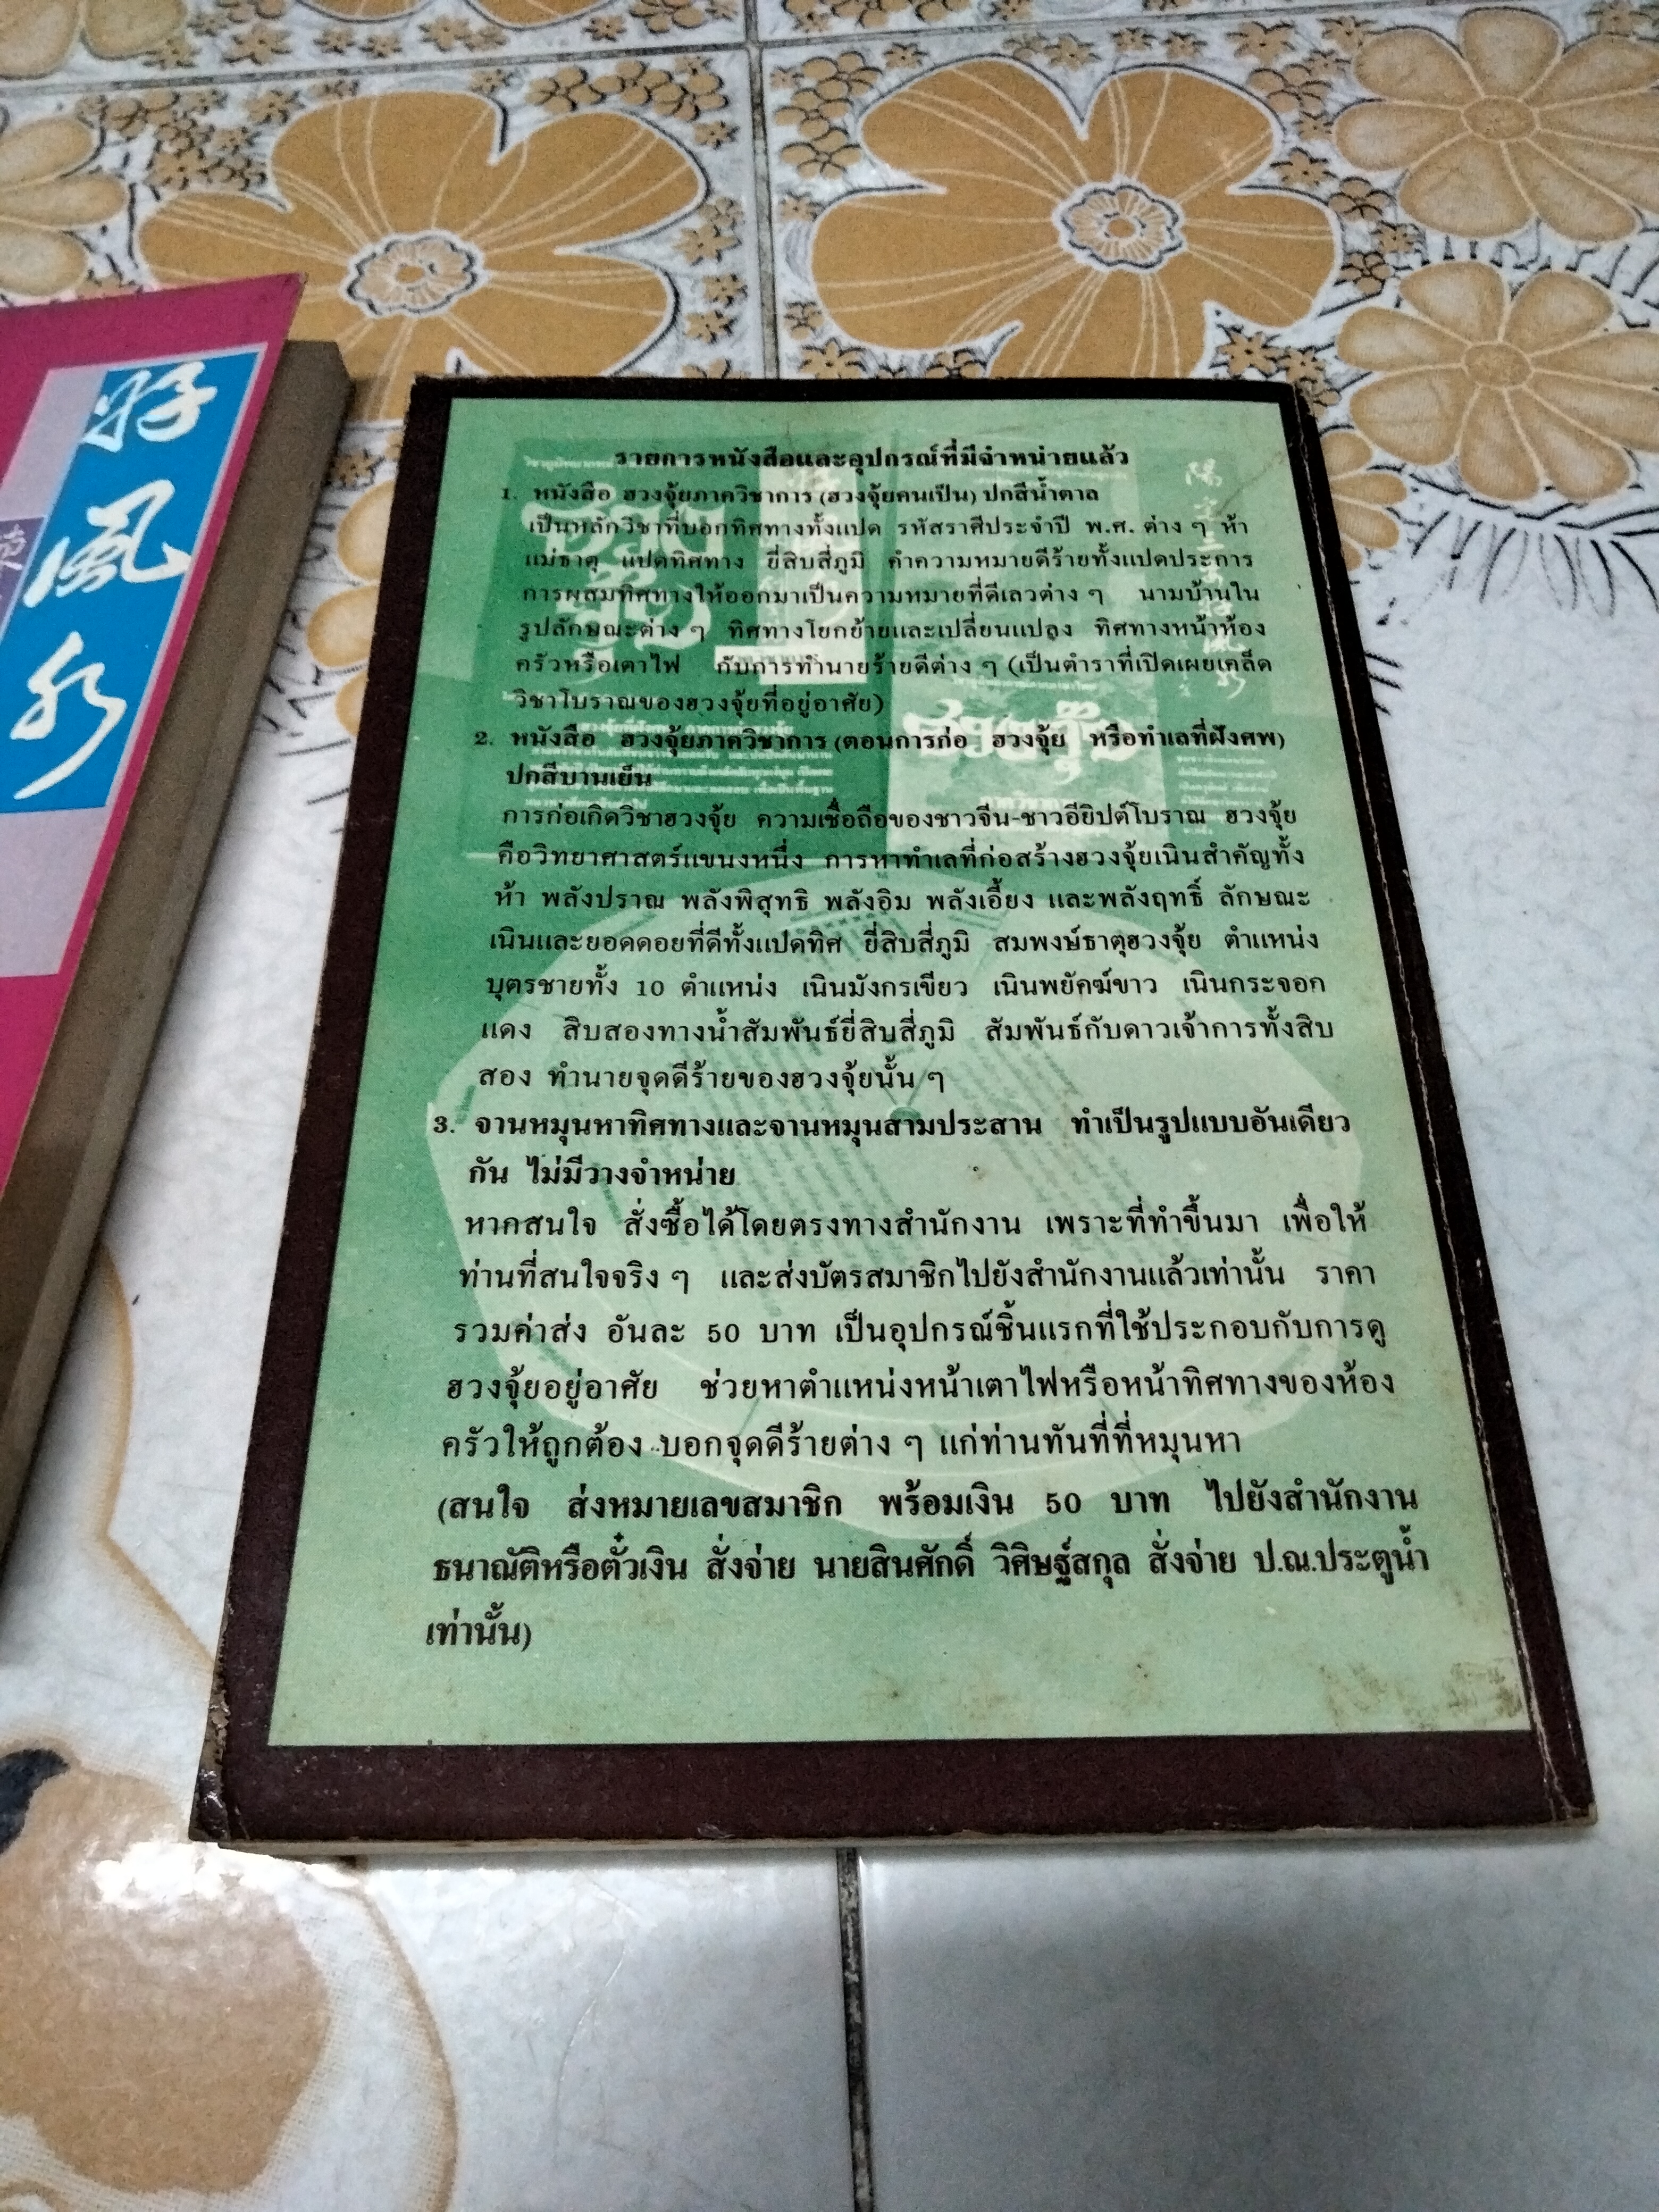 好
風
水
รายการหนังสือและอุปกรณ์ที่มีจำหน่ายแล้ว
1. หนังสือ ฮวงจุ้ยภาควิชาการ (ฮวงจุ้ยคนเป็น) ปกสีน้ำตาล
เป็นหลักวิชาที่บอกทิศทางทั้งแปด รหัสราศีประจำปี พ.ศ. ต่าง ๆ ห้า
แม่ธาตุ แปดทิศทาง ยี่สิบสี่ภูมิ คำความหมายดีร้ายทั้งแปดประการ
การผสมทิศทางให้ออกมาเป็นความหมายที่ดีเลวต่าง ๆ นามบ้านใน
รูปลักษณะต่าง ๆ ทิศทางโยกย้ายและเปลี่ยนแปลง ทิศทางหน้าห้อง
ครัวหรือเตาไฟ กับการทำนายร้ายดีต่าง ๆ (เป็นตำราที่เปิดเผยเคล็ด
วิชาโบราณของฮวงจุ้ยที่อยู่อาศัย)
2. หนังสือ ฮวงจุ้ยภาควิชาการ (ตอนการก่อ ฮวงจุ้ย หรือทำเลที่ฝังศพ)
ปกสีบานเย็น
การก่อเกิดวิชาฮวงจุ้ย ความเชื่อถือของชาวจีน-ชาวอียิปต์โบราณ ฮวงจุ้ย
คือวิทยาศาสตร์แขนงหนึ่ง การหาทำเลที่ก่อสร้างฮวงจุ้ยเนินสำคัญทั้ง
ห้า พลังปราณ พลังพิสุทธิ พลังอิม พลังเอี้ยง และพลังฤทธิ์ ลักษณะ
เนินและยอดดอยที่ดีทั้งแปดทิศ ยี่สิบสี่ภูมิ สมพงษ์ธาตุฮวงจุ้ย ตำแหน่ง
บุตรชายทั้ง 10 ตำแหน่ง เนินมังกรเขียว เนินพยัคฆ์ขาว เนินกระจอก
แดง สิบสองทางน้ำสัมพันธ์ยี่สิบสี่ภูมิ สัมพันธ์กับดาวเจ้าการทั้งสิบ
สอง ทำนายจุดดีร้ายของฮวงจุ้ยนั้น ๆ
3. จานหมุนหาทิศทางและจานหมุนสามประสาน ทำเป็นรูปแบบอันเดียว
กัน ไม่มีวางจำหน่าย
หากสนใจ สั่งซื้อได้โดยตรงทางสำนักงาน เพราะที่ทำขึ้นมา เพื่อให้
ท่านที่สนใจจริง ๆ และส่งบัตรสมาชิกไปยังสำนักงานแล้วเท่านั้น ราคา
รวมค่าส่ง อันละ 50 บาท เป็นอุปกรณ์ชิ้นแรกที่ใช้ประกอบกับการดู
ฮวงจุ้ยอยู่อาศัย ช่วยหาตำแหน่งหน้าเตาไฟหรือหน้าทิศทางของห้อง
ครัวให้ถูกต้อง บอกจุดดีร้ายต่าง ๆ แก่ท่านทันที่ที่หมุนหา
(สนใจ ส่งหมายเลขสมาชิก พร้อมเงิน 50 บาท ไปยังสำนักงาน
ธนาณัติหรือตั๋วเงิน สั่งจ่าย นายสินศักดิ์ วิศิษฐ์สกุล สั่งจ่าย ป.ณ.ประตูน้ำ
เท่านั้น)